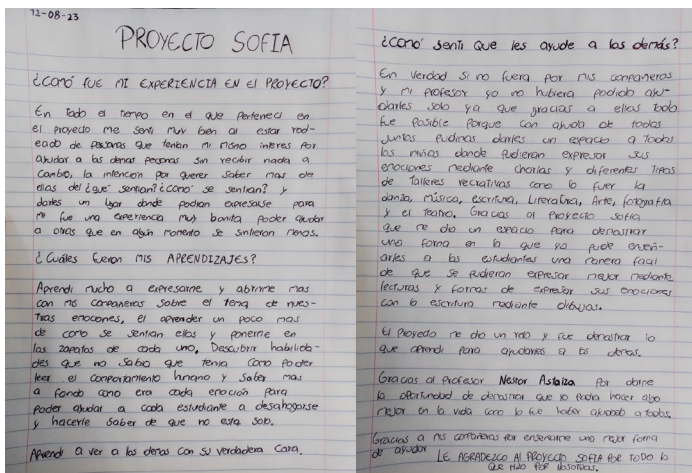 12-08-23
PROYECTO SOFIA
¿COMÓ FUE MI EXPERIENCIA EN El PROYECTO?
En Todo el tiempo en el que perteneci en
el proyecto me senti muy bien al estar rod-
eado de personas que tenian mi mismo interes por
ayudar a las demas personas sin recibir nada a
cambio, la intención por querer saber mas de
ellas del ¿qué sentian? ¿comó se sentian? y
darles un lgar donde podian expresarse para
mi fue una experiencia muy bonita poder ayudar
a otras que en algún momento se sintieron menos.
¿Cuáles fueron mis APRENDIZAJES?
Aprendi mucho a expresarme y abrirme mas
con mis compañeros sobre el tema de nues-
tras emociones, el aprender un poco mas
de como se sentian ellos y ponerme en
los zapatos de cada uno, Descubrir habilida-
des que no sabia que tenia como poder
leer el comportamiento humano y saber mas
a fondo como era cada emoción para
poder ayudar a cada estudiante a desahogarse
y hacerle saber de que no esta solo.
Aprendi a ver a los demas con su verdadera cara.
¿Comó senti que les ayude a los demás?
En verdad si no fuera por mis compañeros
y mi profesor yo no hubiera podido ayu-
darles solo ya que gracias a ellos todo
fue posible porque con ayuda de todos
juntos pudimos darles un espacio a todos
los niños donde pudieran expresar sus
emociones mediante charlas y diferentes tipos
de talleres recreativos como lo fuer la
danza, música, escritura, Literatura, Arte, fotografia
y el Teatro. Gracias al Proyecto sofia
que me dio un espacio para demostrar
una forma en la que yo pude enseñ-
arles a los estudiantes una manera facil
de que se pudieran expresar mejor mediante
lecturas y formas de expresar sus emociones
con la escritura mediante dibujos.
El Proyecto me dio un reto y fue demostrar lo
que aprendi para ayudarles a los demas.
Gracias al profesor Nestor Astaiza por darme
la oportunidad de demostrar que yo podia hacer algo
mejor en la vida como lo fue haber ayudado a todos.
Gracias a mis compañeros por enseñarme una mejor forma
de ayudar LE AGRADEZCO AL PROYECTO SOFIA POR TODO lo
QUE HIZO POR NOSOTROS.